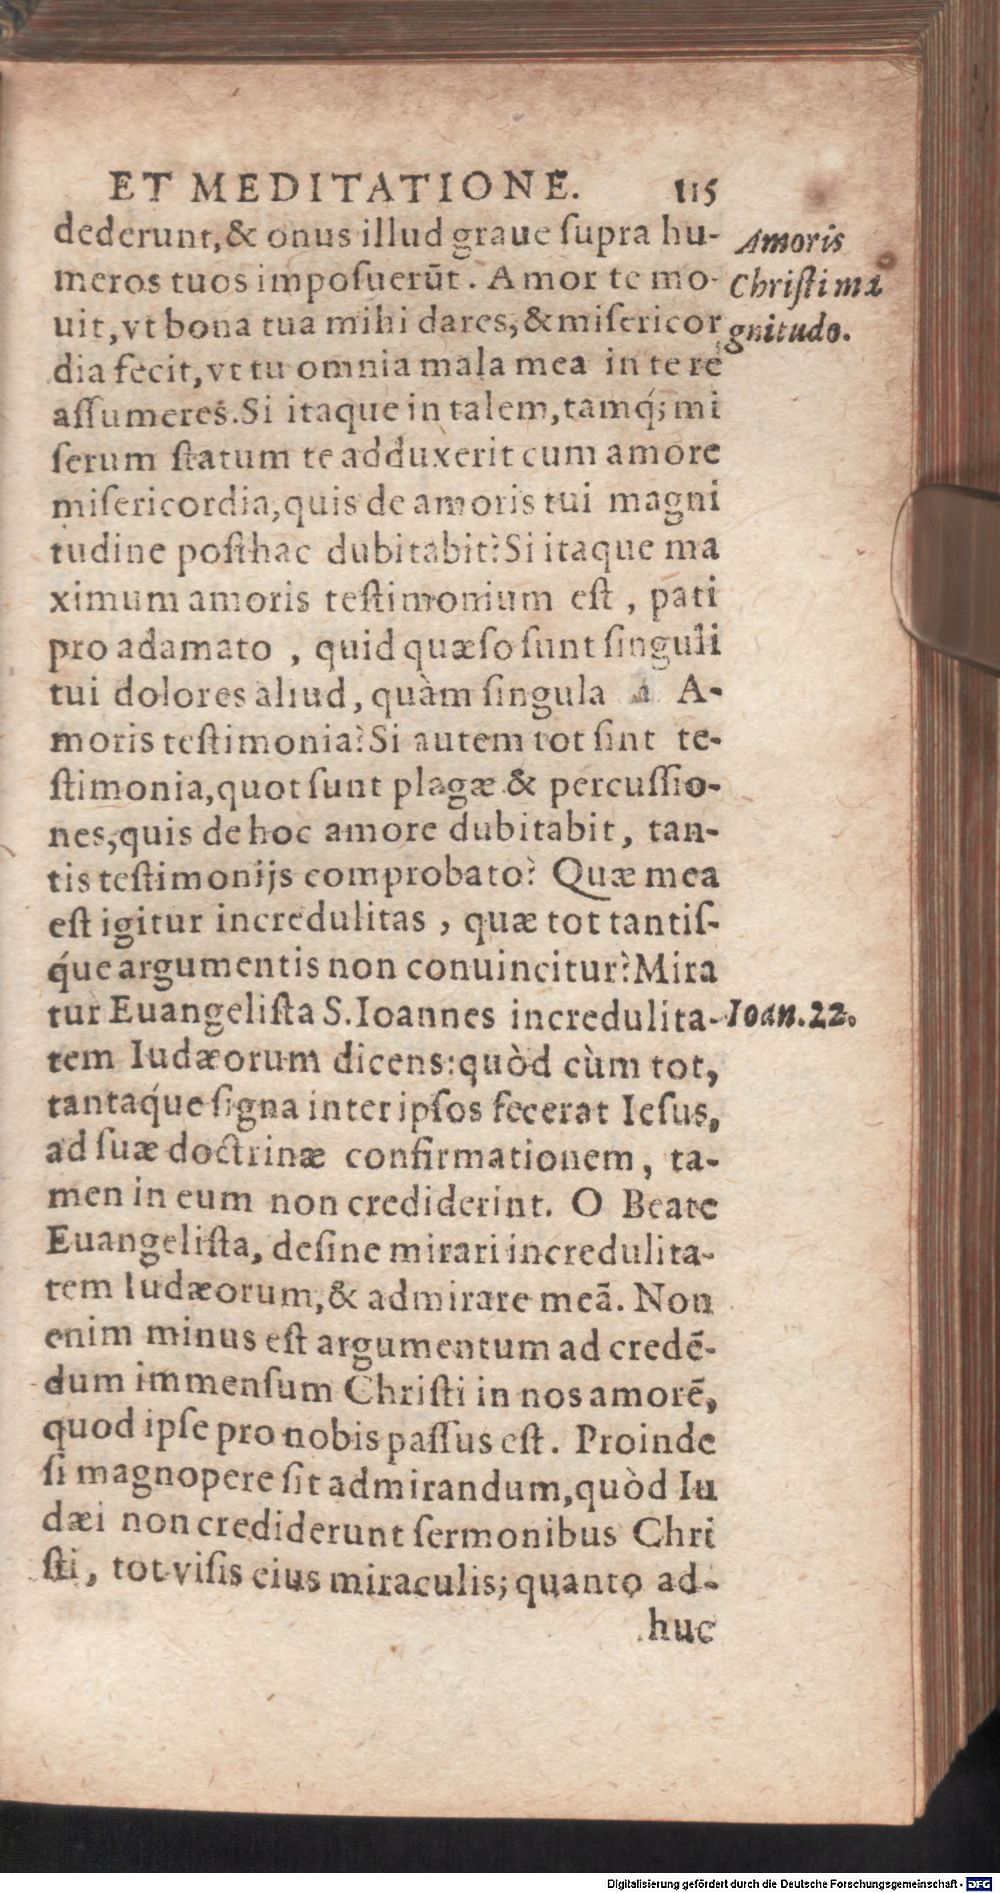 ET MEDITATIONE. 115
dederunt,& onus illud graue ſupra hu-
meros tuos impoſuerūt. Amor te mo-
uit,vt bona tua mihi dares,&miſericor
dia fecit,vt tu omnia mala mea in te re
aſſumeres.Si itaque in talem,tamq́; mi
ſerum ſtatum te adduxerit cum amore
miſericordia,quis de amoris tui magni
tudine poſthac dubitabit?Si itaque ma
ximum amoris teſtimonium eſt , pati
pro adamato , quid quæſo ſunt ſinguli
tui dolores aliud, quàm ſingula A-
moris teſtimonia?Si autem tot ſint te-
ſtimonia,quot ſunt plagæ & percuſſio-
nes,quis de hoc amore dubitabit, tan-
tis teſtimonijs comprobato? Quæ mea
eſt igitur incredulitas , quæ tot tantiſ-
q́ue argumentis non conuincitur?Mira
tur Euangeliſta S.Ioannes incredulita-
tem Iudæorum dicens:quòd cùm tot,
tantaq́ue ſigna inter ipſos fecerat Ieſus,
ad ſuæ doctrinæ confirmationem, ta-
men in eum non crediderint. O Beate
Euangeliſta, deſine mirari incredulita-
tem Iudæorum,& admirare meā. Non
enim minus eſt argumentum ad credē-
dum immenſum Chriſti in nos amorē,
quod ipſe pro nobis paſſus eſt. Proinde
ſi magnopere ſit admirandum,quòd Iu
dæi non crediderunt ſermonibus Chri
ſti, tot viſis eius miraculis; quanto ad-
huc
Amoris
Chriſti ma
gnitudo.
Ioan.22.
Digitalisierung gefördert durch die Deutsche Forschungsgemeinschaft - DFG